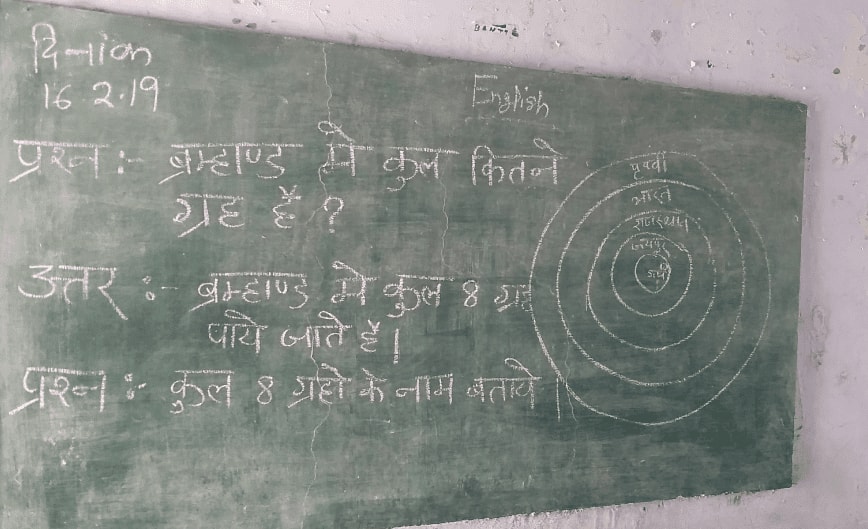 दिनांक
16 2.19
English
प्रश्न :- ब्रम्हाण्ड मे कुल कितने
ग्रह हैं ?
उत्तर :- ब्रम्हाण्ड मे कुल 8 ग्रह
पाये जाते हैं।
प्रश्न :- कुल 8 ग्रहो के नाम बताये।
पृथ्वी
भारत
राजस्थान
जयपुर